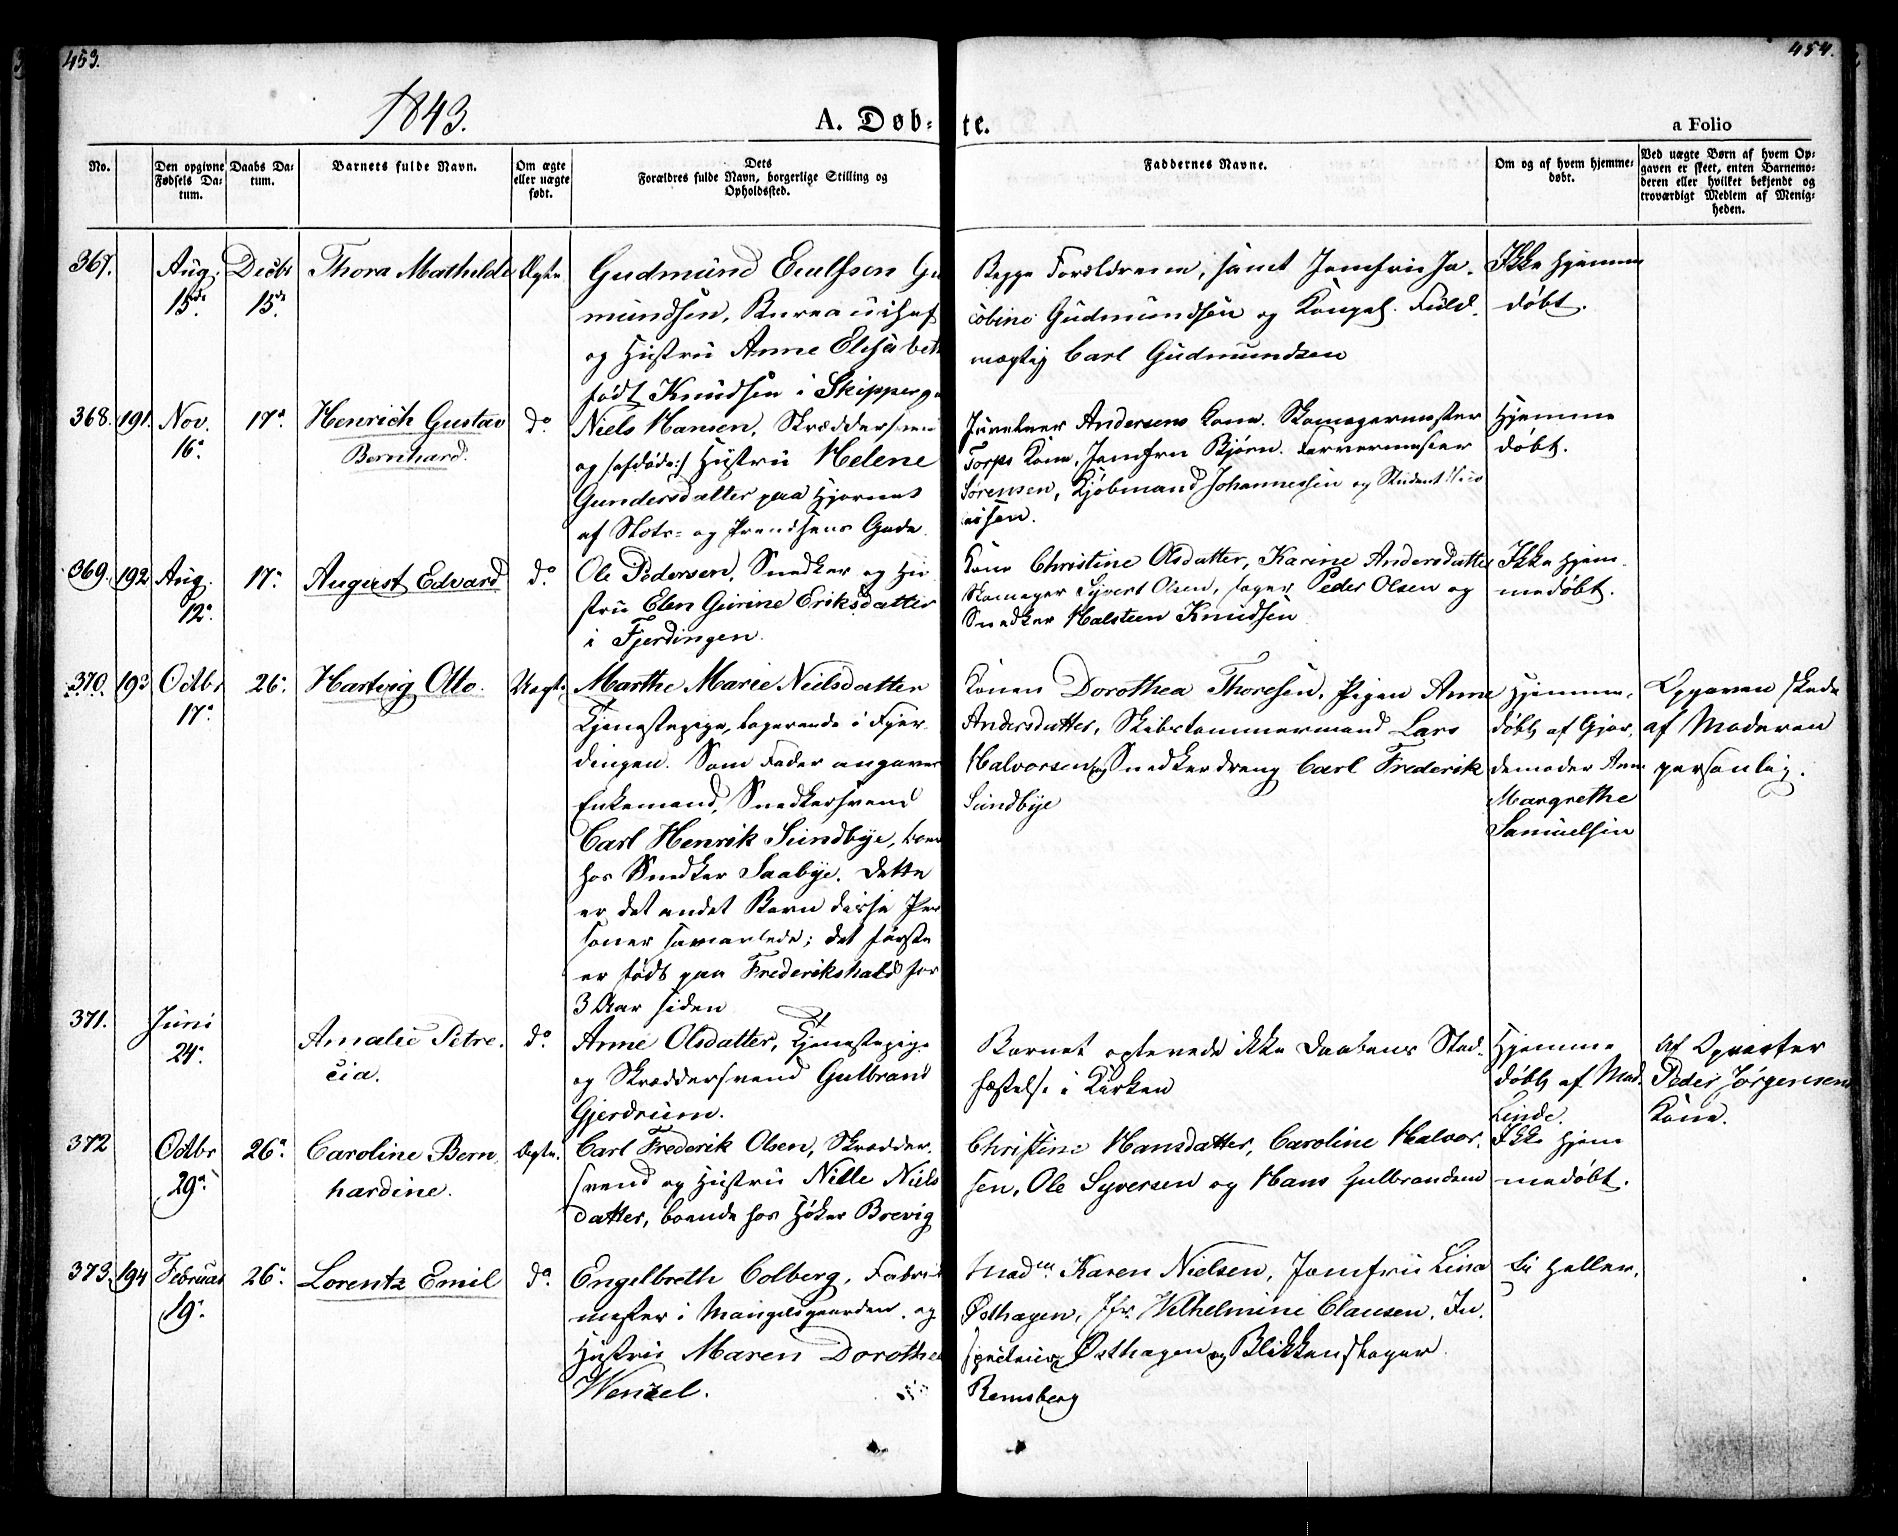 453.
454.
1843.
A. Døb-
te.
a Folio
No.
Den opgivne Fødsels Datum.
Daabs Datum.
Barnets fulde Navn.
Om ægte eller uægte født.
Dets Forældres fulde Navn, borgerlige Stilling og Opholdssted.
Faddernes Navne.
Om og af hvem hjemmedøbt.
Ved uægte Børn af hvem Opgaven er skeet, enten Barnemoderen eller hvilket bekjendt og troværdigt Medlem af Menigheden.
367. Aug. 15de Decbr 15de Thora Mathilde Ægte
Gudmund Eulfsen Gu
mundsen, Bureauchef
og Hustru Anne Elisabeth
født Knudsen i Skipperg
Begge Forældrene, samt Jomfru Ja-
cobine Gudmundsen og Kongel. Fuld-
mægtig Carl Gudmundsen
Ikke hjemme
døbt.
368. 191. Nov. 16. 17. Henrich Gustav
Bernhard.
do.
Niels Hansen, Skræddersven
og (afdøde:) Hustru Helene
Gundersdatter paa Hjørnet
af Slots- og Prendsens Gade.
Juveleer Andersens Kone. Skomagermester
Torps Kone, Jomfru Bjørn. Farvermester
Sørensen, Kjøbmand Johannesen og Student
Hjemme
døbt.
369. 192 Aug. 12. 17. August Edvard do.
Ole Pedersen, Snedker og Hu
stru Elen Gurine Eriksdatter
i Fjerdingen.
Kone Christine Olsdatter, Karine Andersdatter
Skomager Syvert Olsen, Peder Olsen og
Snedker Halsteen Knudsen
Ikke hjem-
medøbt.
370. 193 Octbr 17. 26. Hartvig Otto. Uægt.
Marthe Marie Nielsdatter
Tjenestepige, logerende i Fjer-
dingen. Som Fader angaves
Enkemand, Snedkersvend
Carl Henrik Sundbye, boen
hos Snedker Saabye. Dette
er det andet Barn disse Per
soner sammenlede; det første
er født paa Frederikshald for
3 Aar siden
Konen Dorothea Thoresen, Pigen Anne
Andersdatter, Skibstømmermand Lars
Halvorsen og Snedkerdreng Carl Frederik
Sundbye
Hjemme-
døbt af Gjor-
demoder Ann
Margrethe
Samuelsen
Opgaven skede
af Moderen
personlig.
371. Juni 24. Amalie Petre-
cia.
do.
Anne Olsdatter, Tjenestepige
og Skræddersvend Gulbrand
Gjerdrum.
Barnet oplevede ikke Daabens Stad-
fæstelse i Kirken
Hjemme
døbt af Mad.
Linde.
af Opvarter
Peder Jørgensens
Kone.
372 Octbr 29. 26. Caroline Bern-
hardine.
Ægte.
Carl Frederik Olsen, Skrædder-
svend og Hustru Nille Niels
datter, boende hos Høker Brevig
Christine Hansdatter, Caroline Halvor-
sen, Ole Syversen og Hans Gulbrandsen
Ikke hjem
medøbt.
373. 194 Februar 19. 26. Lorentz Emil do.
Engelbreth Colberg, Fabrik
mester i Mangelsgaarden, og
Hustru Maren Dorothea
Wenzel.
Madm. Karen Nielsen, Jomfru Lina
Østhagen, Jfr. Vilhelmine Clausen, In-
specteur Østhagen og Blikkenslager
Remsberg
Ei heller.